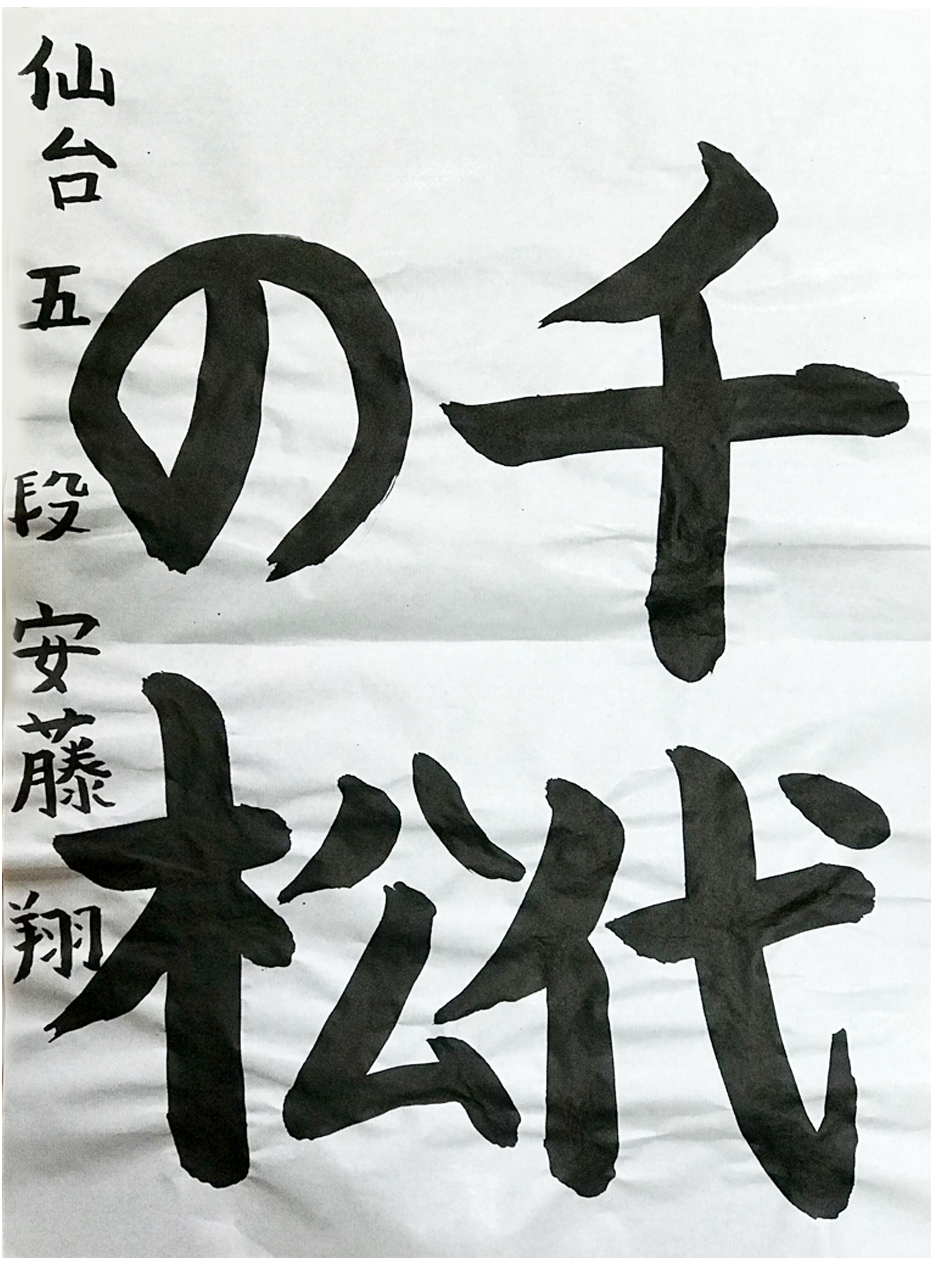 千代
の松
仙台 五段 安藤 翔